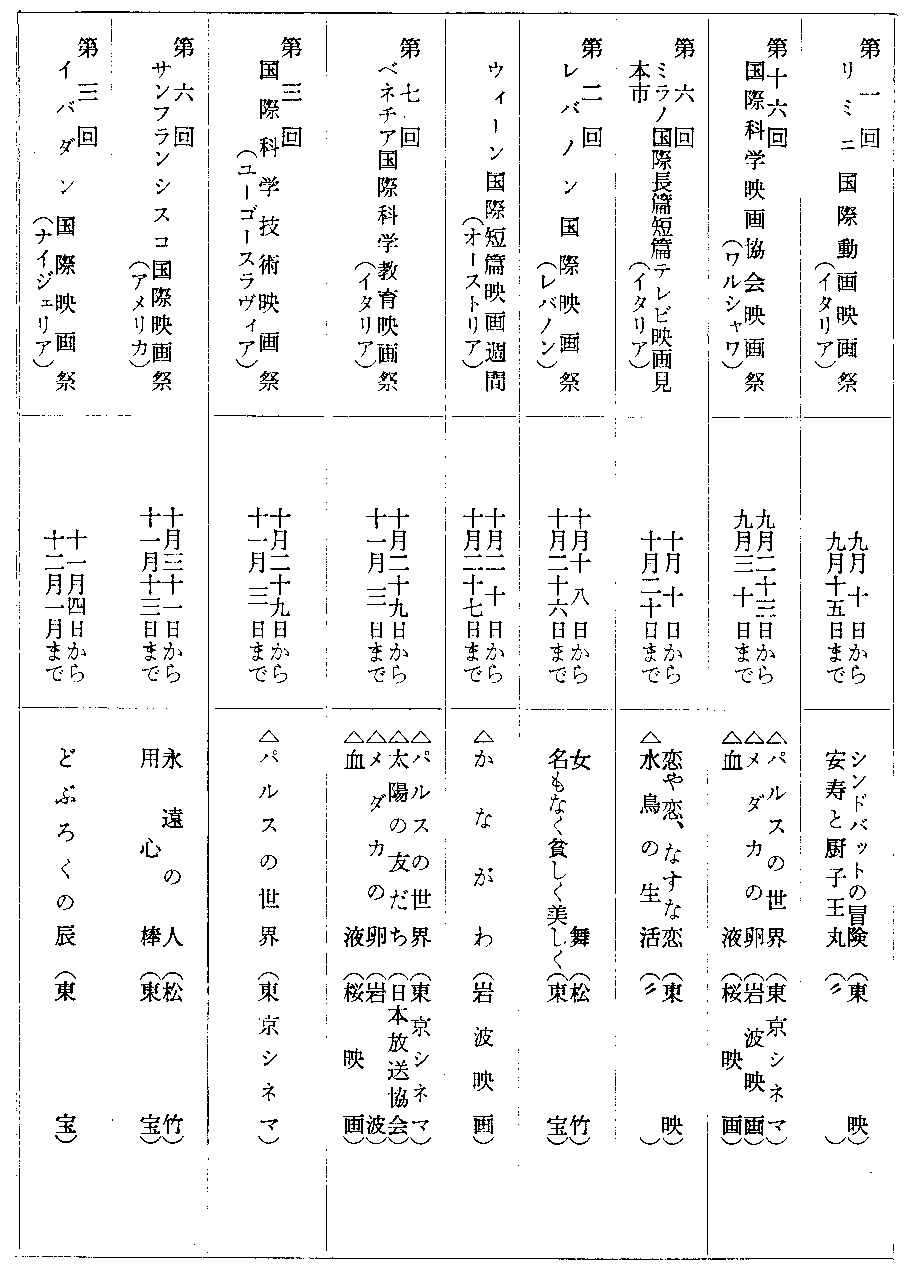 第一回
リミニ国際動画映画祭
(イタリア)
九月十日から
九月十五日まで
シンドバットの冒険(東映)
安寿と厨子王丸(〃)
第十六回
国際科学映画協会映画祭
(ワルシャワ)
九月二十三日から
九月三十日まで
△パルスの世界(東京シネマ)
△メダカの卵(岩波映画)
△血液(桜映画)
第六回
ミラノ国際長篇短篇テレビ映画見
本市
(イタリア)
十月十日から
十月二十日まで
恋や恋、なすな恋(東映)
△水鳥の生活(〃)
第二回
レバノン国際映画祭
(レバノン)
十月十八日から
十月二十六日まで
女舞(松竹)
名もなく貧しく美しく(東宝)
ウィーン国際短篇映画週間
(オーストリア)
十月二十日から
十月二十七日まで
△かながわ(岩波映画)
第七回
ベネチア国際科学教育映画祭
(イタリア)
十月二十九日から
十一月三日まで
△パルスの世界(東京シネマ)
△太陽の友だち(日本放送協会)
△メダカの卵(岩波)
△血液(桜映画)
第三回
国際科学技術映画祭
(ユーゴースラヴィア)
十月二十九日から
十一月三日まで
△パルスの世界(東京シネマ)
第六回
サンフランシスコ国際映画祭
(アメリカ)
十月三十一日から
十一月十三日まで
永遠の人(松竹)
用心棒(東宝)
第三回
イバダン国際映画祭
(ナイジェリア)
十一月四日から
十二月一月まで
どぶろくの辰(東宝)